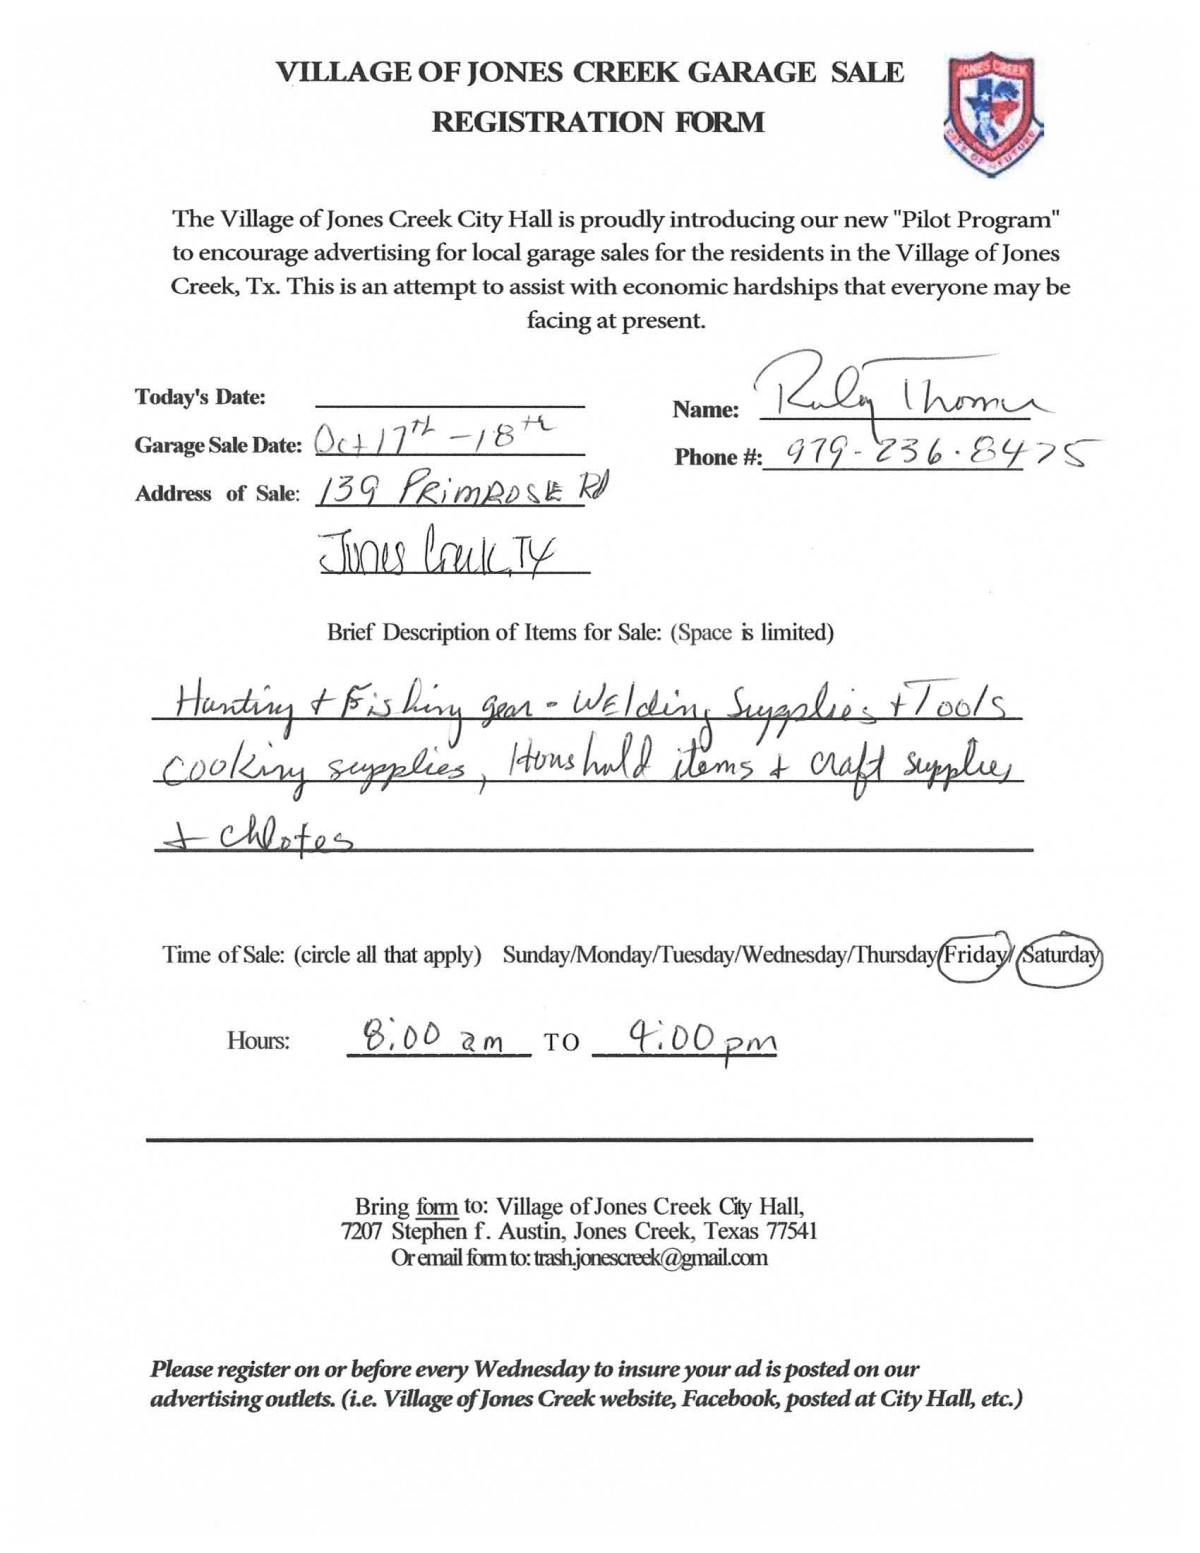 VILLAGE OF JONES CREEK GARAGE SALE
REGISTRATION FORM
JONES CREEK
CITY OF FUTURE
The Village of Jones Creek City Hall is proudly introducing our new "Pilot Program"
to encourage advertising for local garage sales for the residents in the Village of Jones
Creek, Tx. This is an attempt to assist with economic hardships that everyone may be
facing at present.
Today's Date:
Name: Ruby Thomas
Garage Sale Date: Oct 17th - 18th
Phone #: 979-236-8475
Address of Sale: 139 PRIMROSE Rd
Jones Creek, TX
Brief Description of Items for Sale: (Space is limited)
Hunting + Fishing gear - WElding Supplies + Tools
cooking supplies, Houshold items + craft supplies
+ chlotes
Time of Sale: (circle all that apply) Sunday/Monday/Tuesday/Wednesday/Thursday/Friday/Saturday
Hours: 8:00 am TO 4:00 pm
Bring form to: Village of Jones Creek City Hall,
7207 Stephen f. Austin, Jones Creek, Texas 77541
Or email form to: trash.jonescreek@gmail.com
Please register on or before every Wednesday to insure your ad is posted on our
advertising outlets. (i.e. Village of Jones Creek website, Facebook, posted at City Hall, etc.)